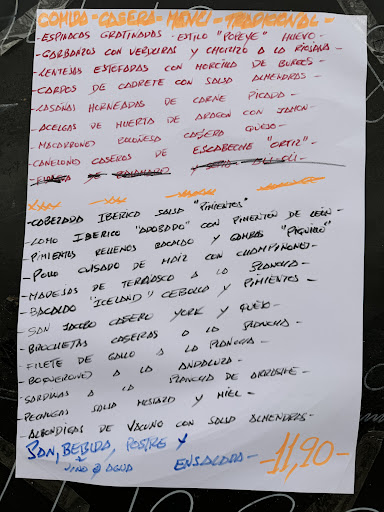 COMIDA - CASERA - MENU - TRADICIONAL -
- ESPINACAS GRATINADAS - ESTILO "POPEYE" HUEVO -
- GARBANZOS CON VERDURAS Y CHORIZO A LA RIOJANA
- LENTEJAS ESTOFADAS CON MORCILLA DE BURGOS -
- CARDOS DE CADRETE CON SALSA ALMENDRAS -
- LASAÑAS HORNEADAS DE CARNE PICADA -
- ACELGAS DE HUERTA DE ARAGON CON JAMON -
- MACARRONES BOLOÑESA CASERA QUESO -
- CANELONES CASEROS DE ESCABECHE "ORTIZ" -
- CABEZADA IBERICA SALSA "PIMIENTOS"
- LOMO IBERICO "ADOBADO" CON PIMENTÓN DE LEÓN -
- PIMIENTOS RELLENOS BACALAO Y GAMBAS "PIQUILLO"
- POLLO GUISADO DE MAIZ CON CHAMPIÑONES -
- MADEJAS DE TERNASCO A LA PLANCHA -
- BACALAO "ICELAND" CEBOLLA Y PIMIENTOS -
- SAN JACOBO CASERO YORK Y QUESO -
- BROCHETAS CASERAS A LA PLANCHA -
- FILETE DE GALLO A LA PLANCHA -
- BOQUERONES A LA ANDALUZA -
- SARDINAS A LA PLANCHA DE ARRECIFE -
- PECHUGAS SALSA MOSTAZA Y MIEL -
- ALBONDIGAS DE VACUNO CON SALSA ALMENDRAS -
PAN, BEBIDA, POSTRE Y
VINO O AGUA ENSALADA - 11,90 -